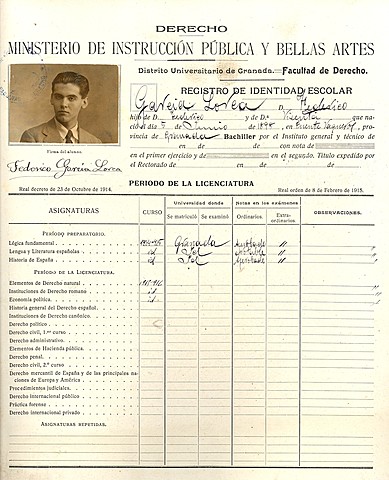 DERECHO
MINISTERIO DE INSTRUCCIÓN PÚBLICA Y BELLAS ARTES
Distrito Universitario de Granada. Facultad de Derecho.
REGISTRO DE IDENTIDAD ESCOLAR
García Lorca D. Federico
hijo de D. Federico y de D.ª Vicenta que na-
ció el día 5 de Junio de 189 en Fuente Vaqueros, pro-
vincia de Granada Bachiller por el Instituto general y técnico de
en de de con nota de
en el primer ejercicio y de en el segundo. Título expedido por
el Rectorado de en de de
Firma del alumno.
Federico García Lorca
Real decreto de 23 de Octubre de 1914.
PERIODO DE LA LICENCIATURA
Real orden de 8 de Febrero de 1915.
ASIGNATURAS CURSO Universidad donde Notas en los exámenes OBSERVACIONES.
Se matriculó Se examinó Ordinarios. Extraordinarios.
PERÍODO PREPARATORIO.
Lógica fundamental 1914-915 Granada "
Lengua y Literatura españolas id "
Historia de España id "
PERÍODO DE LA LICENCIATURA.
Elementos de Derecho natural
Instituciones de Derecho romano
Economía política
Historia general del Derecho español.
Instituciones de Derecho canónico.
Derecho político
Derecho civil, 1.er curso
Derecho administrativo.
Elementos de Hacienda pública.
Derecho penal.
Derecho civil, 2.º curso
Derecho mercantil de España y de las principales na-
ciones de Europa y América
Procedimientos judiciales.
Derecho internacional público
Práctica forense
Derecho internacional privado
ASIGNATURAS REPETIDAS.